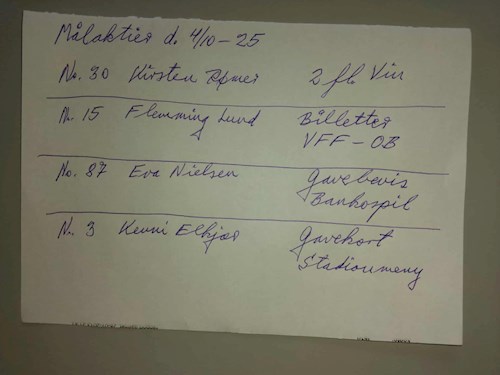 Målaktier d. 4/10-25
No. 30 Kirsten 2 fl. Vin
No. 15 Flemming Lund Billetter
VFF - OB
No. 87 Eva Nielsen Gavebevis
Banko spil
No. 3 Kenni Elkjær Gavekort
Stadionmeny